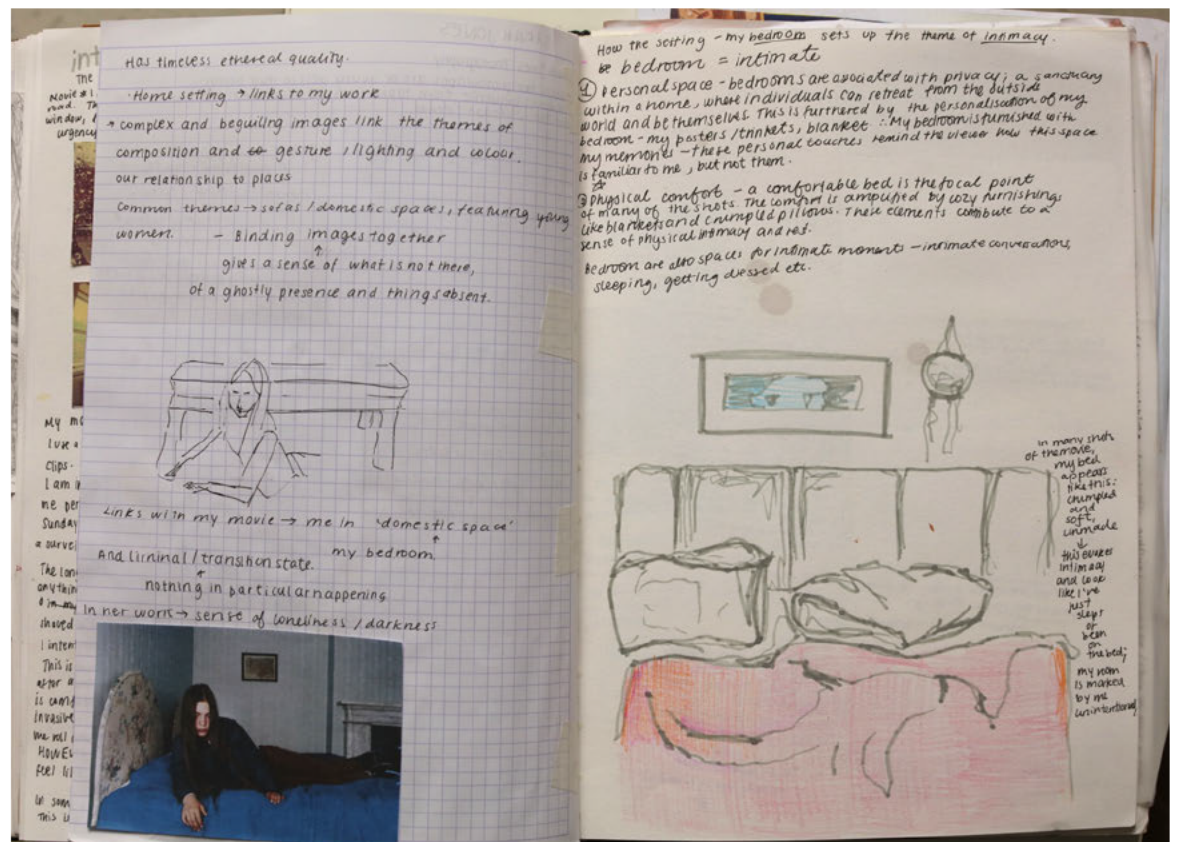 int
The
Movie
road. Th
window,
urgency
My mo
I use a
clips.
I am i
me per
Sunday
a survei
The lon
anythin
shoved
I inten
This is
after a
is cand
invasive
me roll
HOWEV
feel li
In som
This is
Has timeless ethereal quality.
· Home setting → links to my work
→ complex and beguiling images link the themes of
composition and gesture / lighting and colour.
our relationship to places
Common themes → sofas / domestic spaces, featuring young
women. – Binding images together
↑
gives a sense of what is not there,
of a ghostly presence and things absent.
Links with my movie → me in 'domestic space'
↑
my bedroom
And liminal / transition state.
↑
nothing in particular happening
In her work → sense of loneliness / darkness
How the setting – my bedroom sets up the theme of intimacy.
bedroom = intimate
① Personal space – bedrooms are associated with privacy; a sanctuary
within a home, where individuals can retreat from the outside
world and be themselves. This is furthered by the personalisation of my
bedroom – my posters / trinkets, blanket ∴ My bedroom is furnished with
my memories – these personal touches remind the viewer how this space
is familiar to me, but not them.
② Physical comfort – a comfortable bed is the focal point
of many of the shots. The comfort is amplified by cozy furnishings
like blankets and crumpled pillows. These elements contribute to a
sense of physical intimacy and rest.
Bedroom are also spaces for intimate moments – intimate conversations,
sleeping, getting dressed etc.
in many shots
of the movie,
my bed
appears
like this:
crumpled
and
soft,
unmade
↓
this evokes
intimacy
and look
like I've
just
slept
or
been
on
the bed;
my room
is marked
by me
unintentional